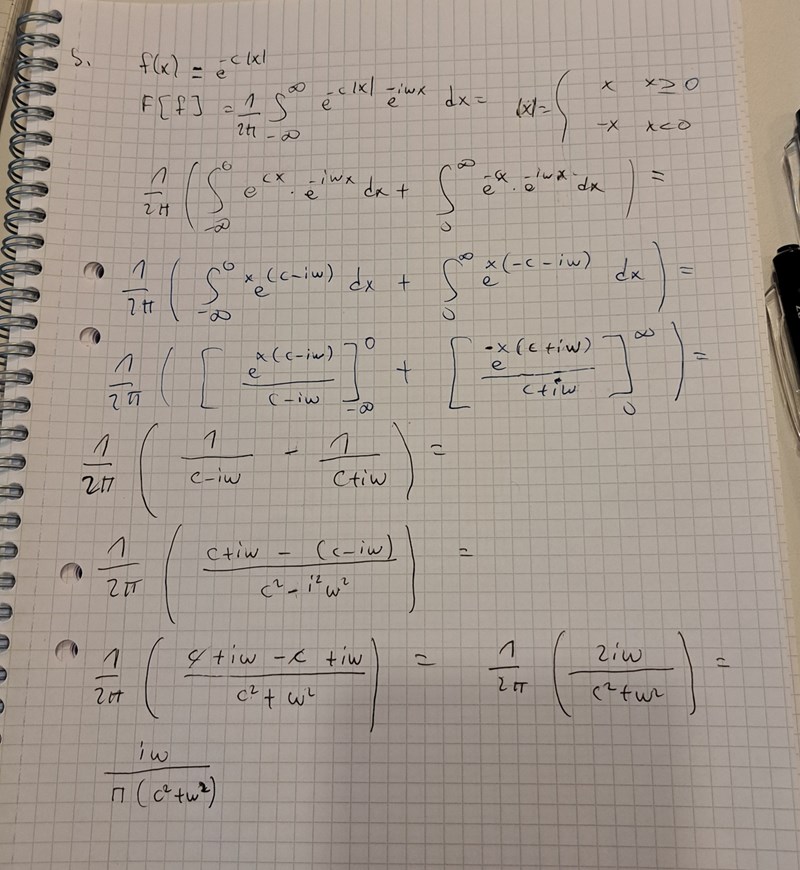 5. f(x) = e^{-c|x|}
F[f] = \frac{1}{2π} \int_{-∞}^{∞} e^{-c|x|} e^{-iwx} dx = |x| = { x x ≥ 0
-x x < 0
\frac{1}{2π} ( \int_{-∞}^{0} e^{cx} · e^{-iwx} dx + \int_{0}^{∞} e^{-cx} · e^{-iwx} · dx ) =
\frac{1}{2π} ( \int_{-∞}^{0} e^{x(c-iw)} dx + \int_{0}^{∞} e^{x(-c-iw)} dx ) =
\frac{1}{2π} ( [ \frac{e^{x(c-iw)}}{c-iw} ]_{-∞}^{0} + [ \frac{e^{-x(c+iw)}}{c+iw} ]_{0}^{∞} ) =
\frac{1}{2π} ( \frac{1}{c-iw} - \frac{1}{c+iw} ) =
\frac{1}{2π} ( \frac{c+iw - (c-iw)}{c^2 - i^2w^2} ) =
\frac{1}{2π} ( \frac{c+iw-c+iw}{c^2+w^2} ) = \frac{1}{2π} ( \frac{2iw}{c^2+w^2} ) =
\frac{iw}{π(c^2+w^2)}